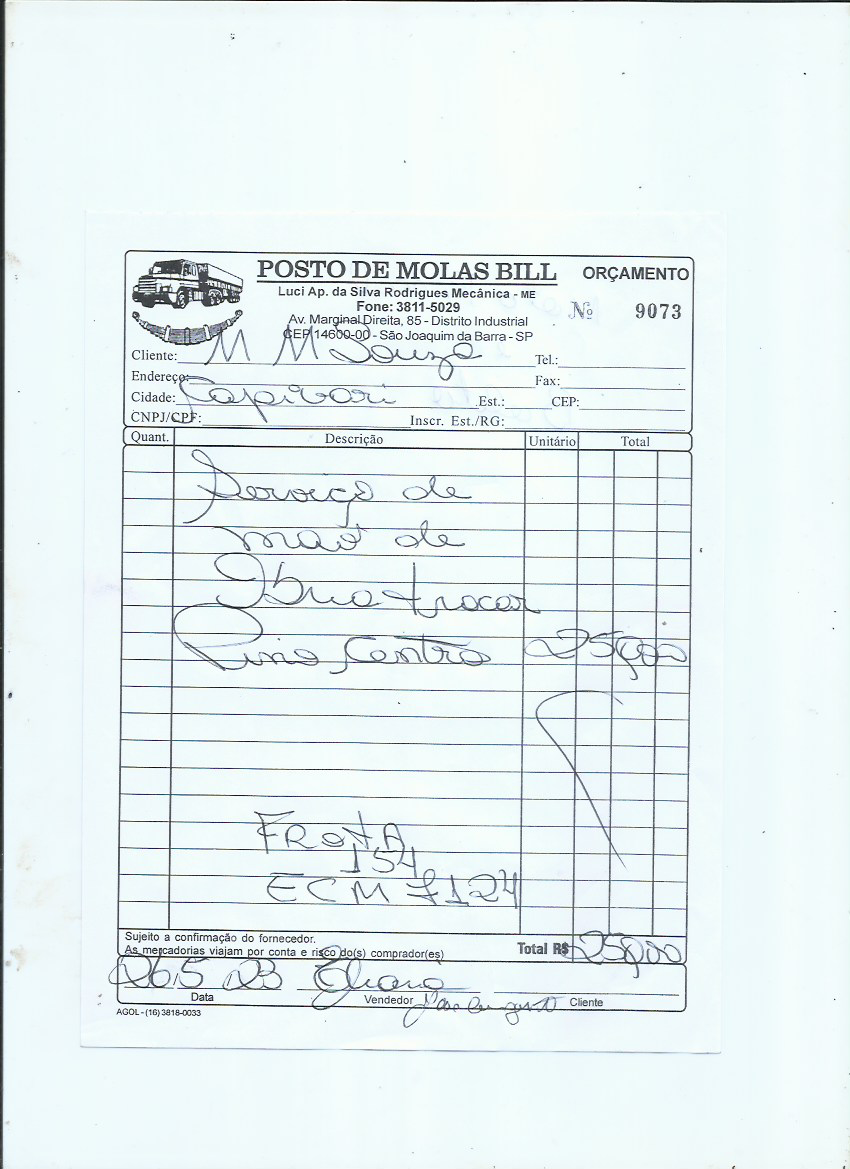 POSTO DE MOLAS BILL
ORÇAMENTO
Luci Ap. da Silva Rodrigues Mecânica - ME
Fone: 3811-5029
Nº 9073
Av. Marginal Direita, 85 - Distrito Industrial
CEP 14600-00 - São Joaquim da Barra - SP
Cliente: M M Souza Tel.:
Endereço: Fax:
Cidade: Capivari Est.: CEP:
CNPJ/CPF: Inscr. Est./RG:
Quant. Descrição Unitário Total
Serviço de
mão de
Obra trocar
Pino Centro 250,00
FROTA
154
ECM 7124
Sujeito a confirmação do fornecedor.
As mercadorias viajam por conta e risco do(s) comprador(es)
Total R$ 250,00
26 5 23
Data Vendedor Cliente
AGOL - (16) 3818-0033